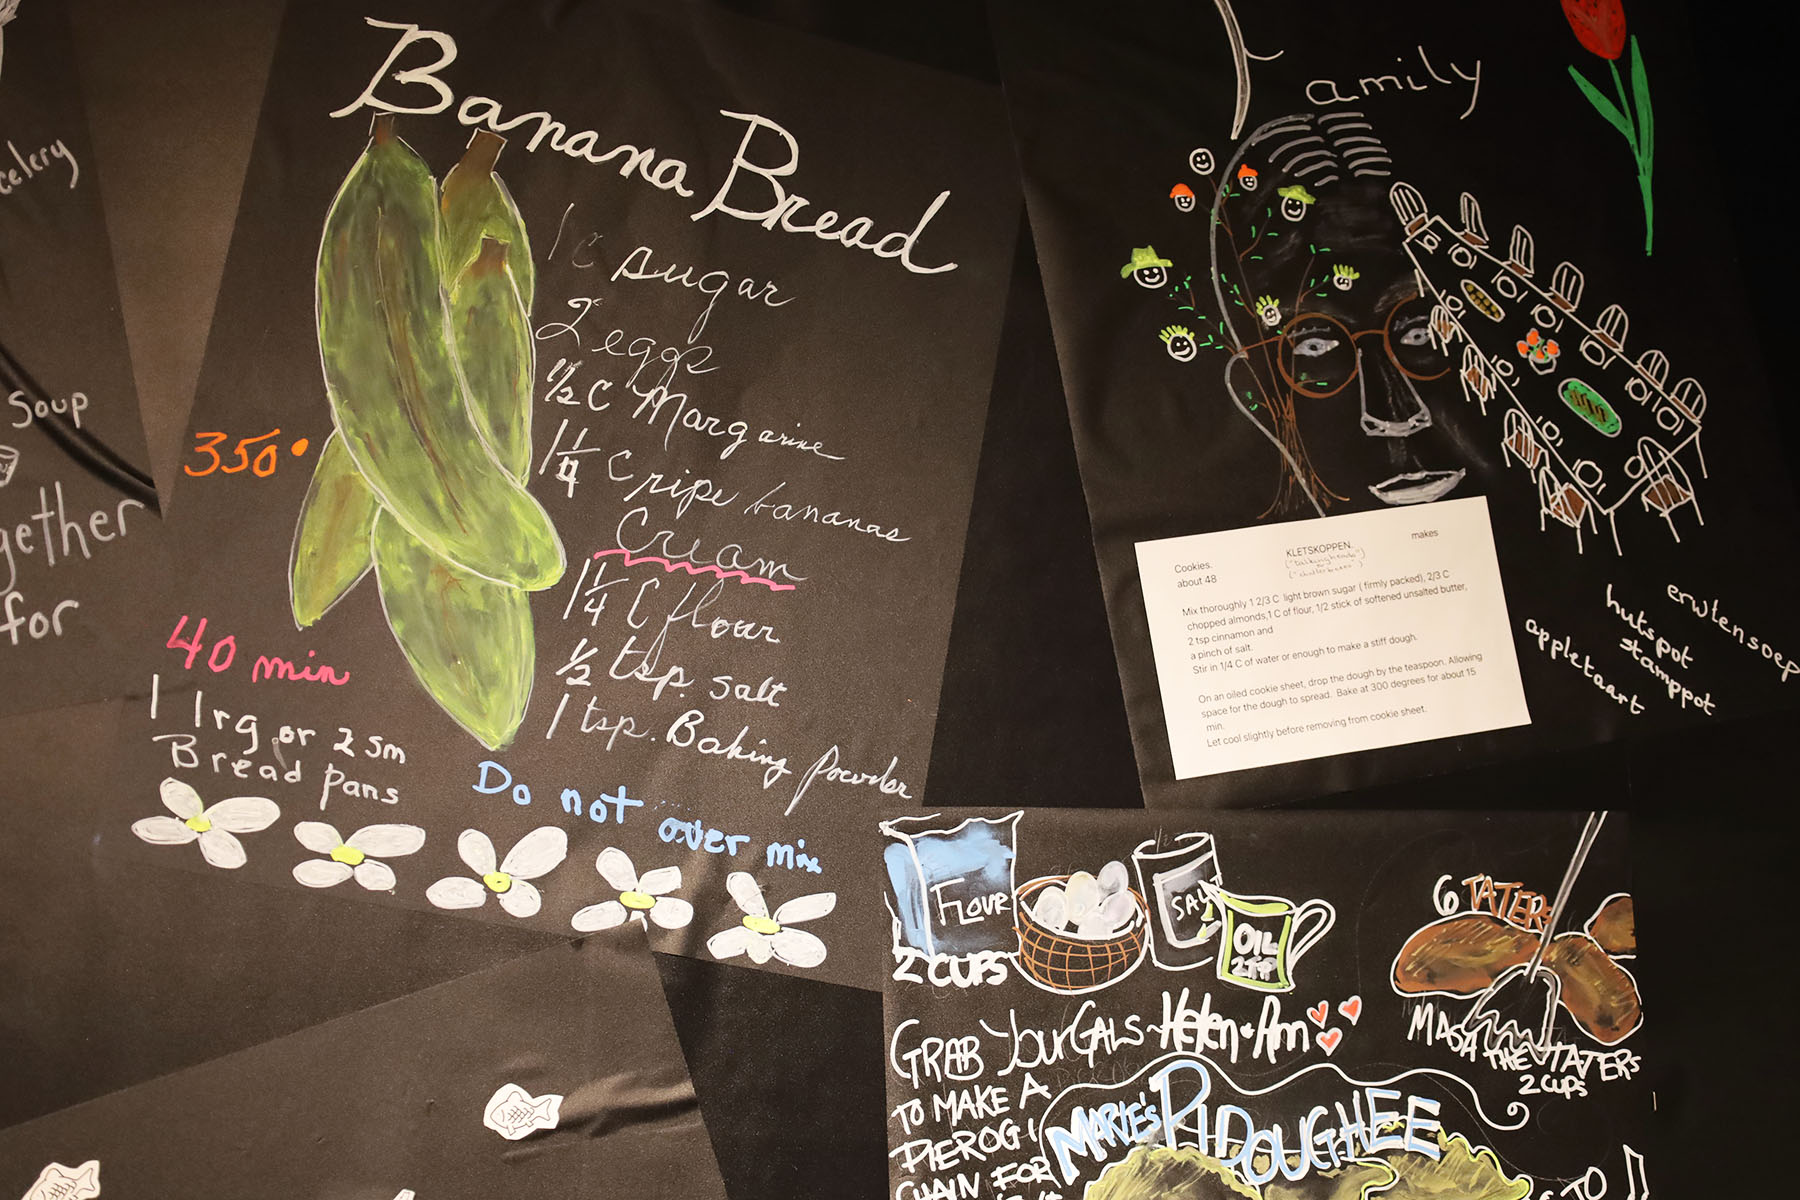 celery
Soup
gether
for
Banana Bread
1 c sugar
2 eggs
1/2 C Margarine
1 1/4 C ripe bananas
Cream
1 1/4 C flour
1/2 tsp. salt
1 tsp. Baking Powder
350°
40 min
1 lrg or 2 sm
Bread pans
Do not over mix
Family
Cookies. KLETSKOPPEN. makes
about 48
("talking heads")
("chatterboxes")
Mix thoroughly 1 2/3 C light brown sugar ( firmly packed), 2/3 C
chopped almonds,1 C of flour, 1/2 stick of softened unsalted butter,
2 tsp cinnamon and
a pinch of salt.
Stir in 1/4 C of water or enough to make a stiff dough.
On an oiled cookie sheet, drop the dough by the teaspoon. Allowing
space for the dough to spread. Bake at 300 degrees for about 15
min.
Let cool slightly before removing from cookie sheet.
appletaart
hutspot
stamppot
erwtensoep
FLOUR
2 CUPS
SALT
OIL
6 TATERS
MASH THE TATERS
2 CUPS
GRAB YOUR GALS ~ Helen & Ann
TO MAKE A
PIEROGI
CHAIN FOR
MARIE'S PIDOUGHEE
TO